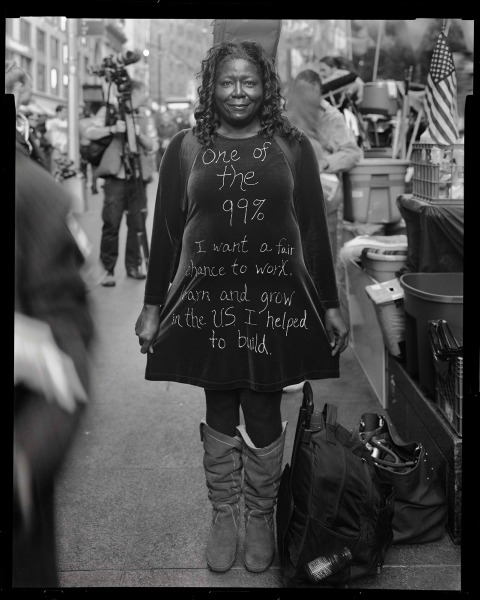 One of
the
99%
I want a fair
chance to work,
earn and grow
in the U.S. I helped
to build.